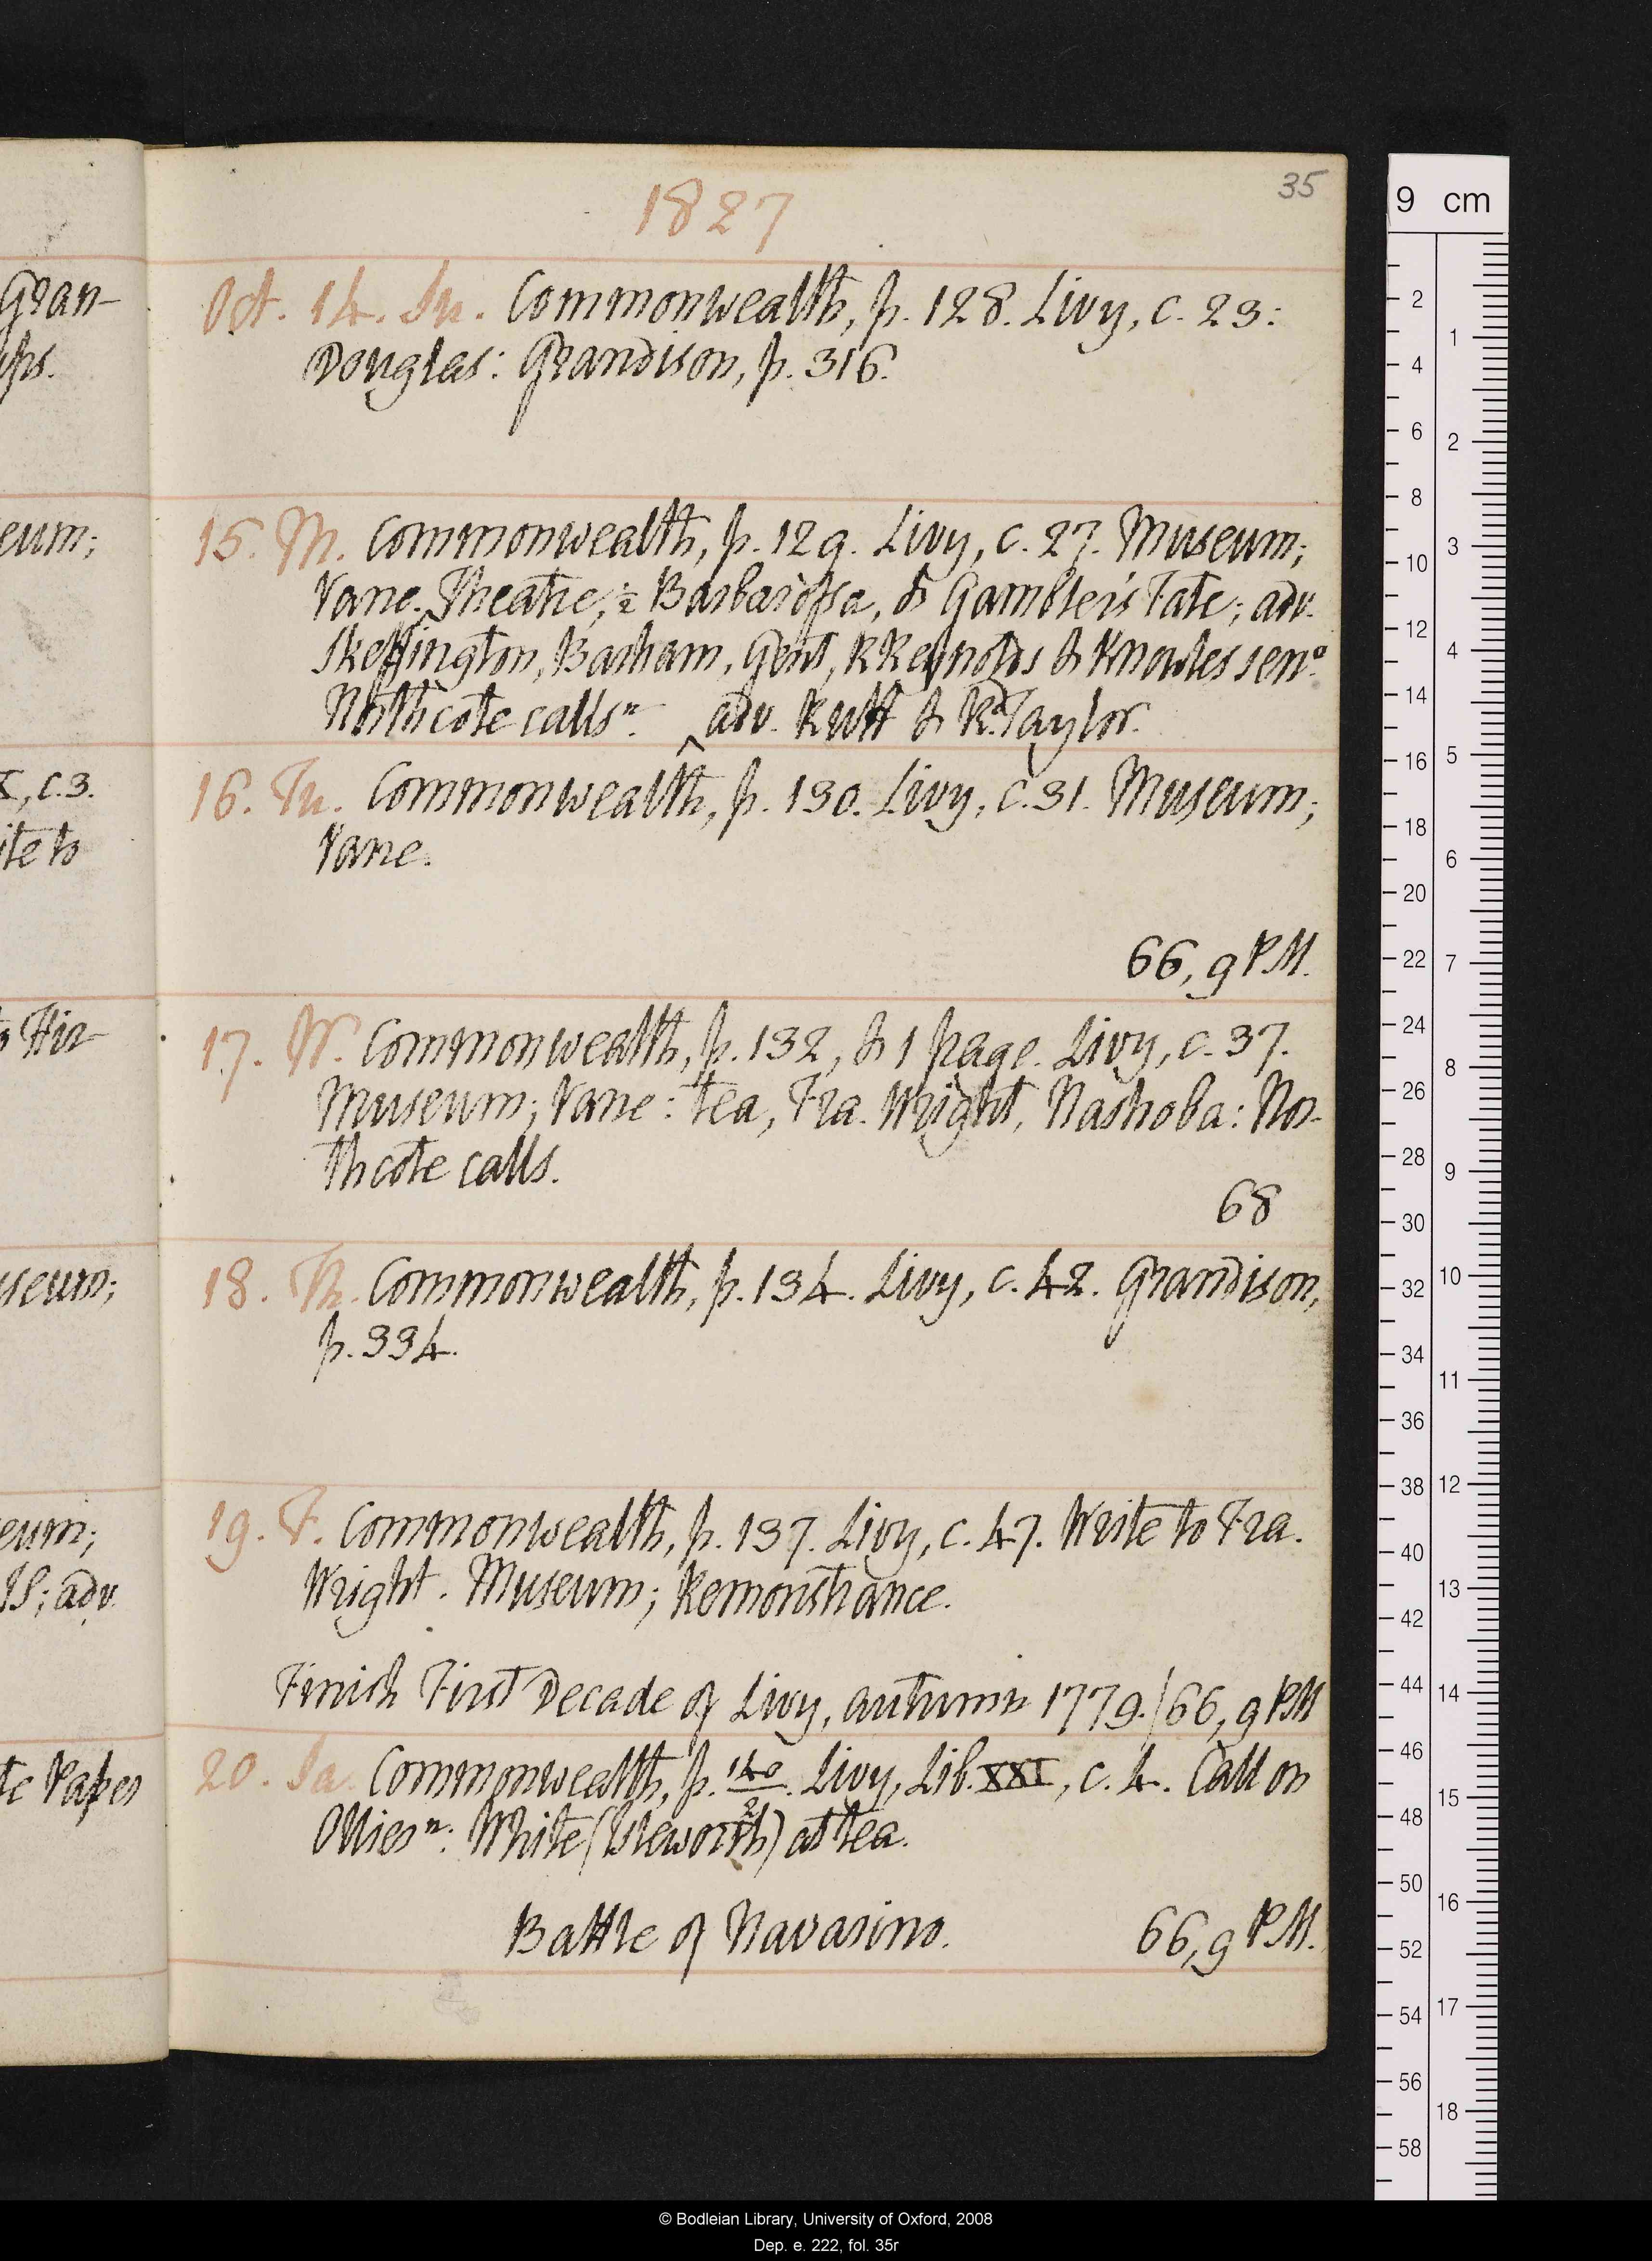 1827
35
Oct. 14. Su. Commonwealth, p. 128. Livy, c. 23:
Douglas: Grandison, p. 316.
15. M. Commonwealth, p. 129. Livy, c. 27. Museum;
Vane. Theatre, ½ Barbarossa, & Gambler's Fate; adv.
Skeffington, Barham, Gent, R Reynolds & Knowles senr.
Northcote calls n. ^ adv. Rutt & Rd. Taylor.
16. Tu. Commonwealth, p. 130. Livy, c. 31. Museum;
Vane.
66, 9 PM.
17. W. Commonwealth, p. 132, & 1 page. Livy, c. 37.
Museum; Vane: tea, Fra. Wright, Nashoba: Nor-
thcote calls.
68
18. Th. Commonwealth, p. 134. Livy, c. 42. Grandison,
p. 334.
19. F. Commonwealth, p. 137. Livy, c. 47. Write to Fra.
Wright. Museum; Remonstrance.
Finish First Decade of Livy, autumn 1779. / 66, 9 PM
20. Sa. Commonwealth, p. 140/2. Livy, Lib. XXI, c. 4. Call on
Ollier n: White (Isleworth) at tea.
Battle of Navarino.
66, 9 PM.
Gran-
eum;
X, c. 3.
ite to
useum;
eum;
IS; adv.
te Paper
9 cm
2
4
6
8
10
12
14
16
18
20
22
24
26
28
30
32
34
36
38
40
42
44
46
48
50
52
54
56
58
1
2
3
4
5
6
7
8
9
10
11
12
13
14
15
16
17
18
© Bodleian Library, University of Oxford, 2008
Dep. e. 222, fol. 35r